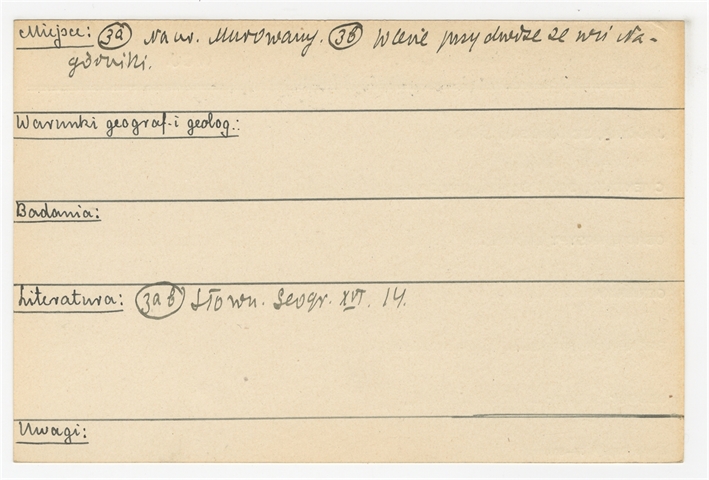 Miejsce: 3a Na ur. Murowany. 3b W lesie przy drodze ze wsi Na-
górniki.
Warunki geograf. i geolog.:
Badania:
Literatura: 3ab Słown. Geogr. XVI. 14.
Uwagi: